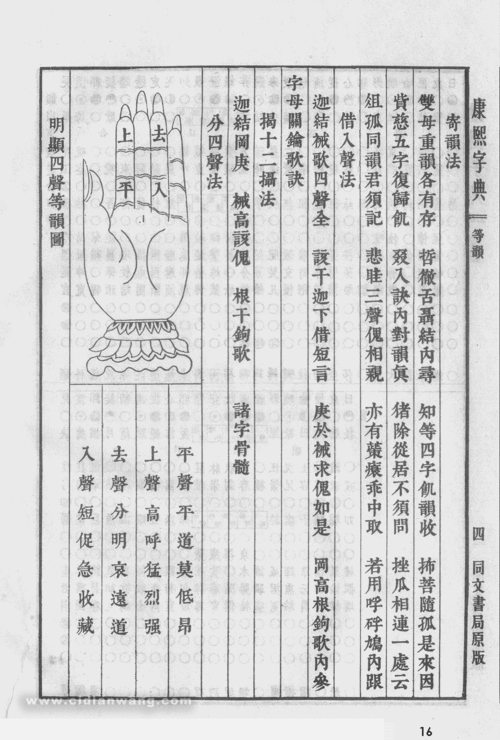 康熙字典 等韻 四 同文書局原版
寄韻法
雙母重韻各有存 哲徹舌聶結內尋 知等四字飢韻收 抪菩隨孤是來因
貲慈五字復歸飢 裻入訣內對韻眞 猪除從居不須問 挫瓜相連一處云
俎孤同韻君須記 悲眭三聲傀相親 亦有䕫㾡乖中取 若用呼䂫鳩內跟
借入聲法
迦結械歌四聲全 該干迦下借短言 庚於械求傀如是 岡高根鉤歌內參
字母關鑰歌訣
揭十二攝法
迦結岡庚 械高該傀 根干鉤歌 諸字骨髓
分四聲法
去
上
入
平
平聲平道莫低昂
上聲高呼猛烈强
去聲分明哀遠道
入聲短促急收藏
明顯四聲等韻圖
www.cidianwang.com
16